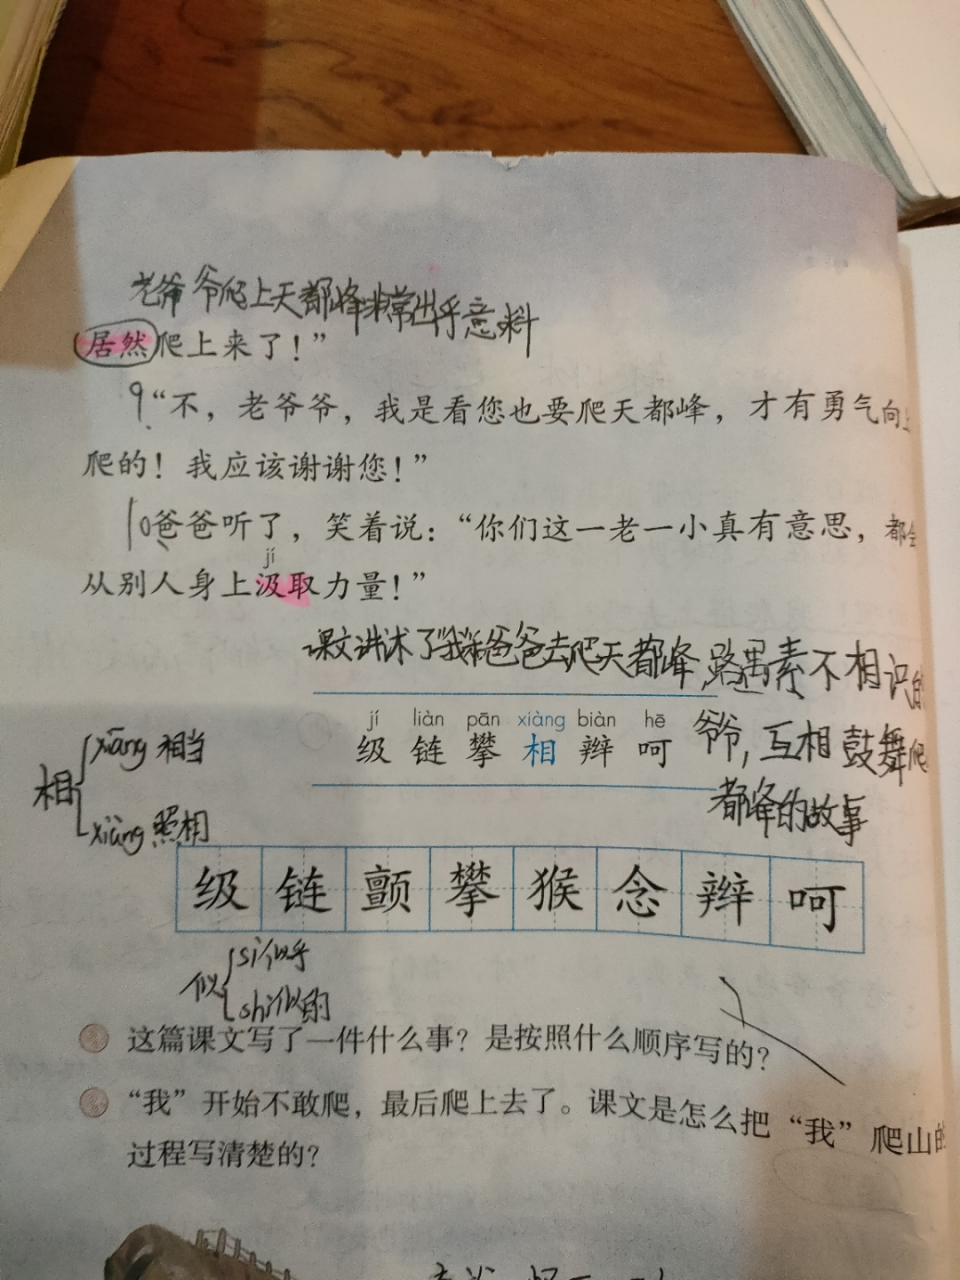 老爷爷爬上天都峰非常出乎意料
居然爬上来了！”
9“不，老爷爷，我是看您也要爬天都峰，才有勇气向上
爬的！我应该谢谢您！”
10爸爸听了，笑着说：“你们这一老一小真有意思，都会
jí
从别人身上汲取力量！”
课文讲述了“我”和爸爸去爬天都峰，路遇素不相识的
jí liàn pān xiàng biàn hē
级 链 攀 相 辫 呵
爷爷，互相鼓舞爬
都峰的故事
相
xiāng 相当
xiàng 照相
级 链 颤 攀 猴 念 辫 呵
似
sì 似乎
shì 似的
这篇课文写了一件什么事？是按照什么顺序写的？
“我”开始不敢爬，最后爬上去了。课文是怎么把“我”爬山的
过程写清楚的？